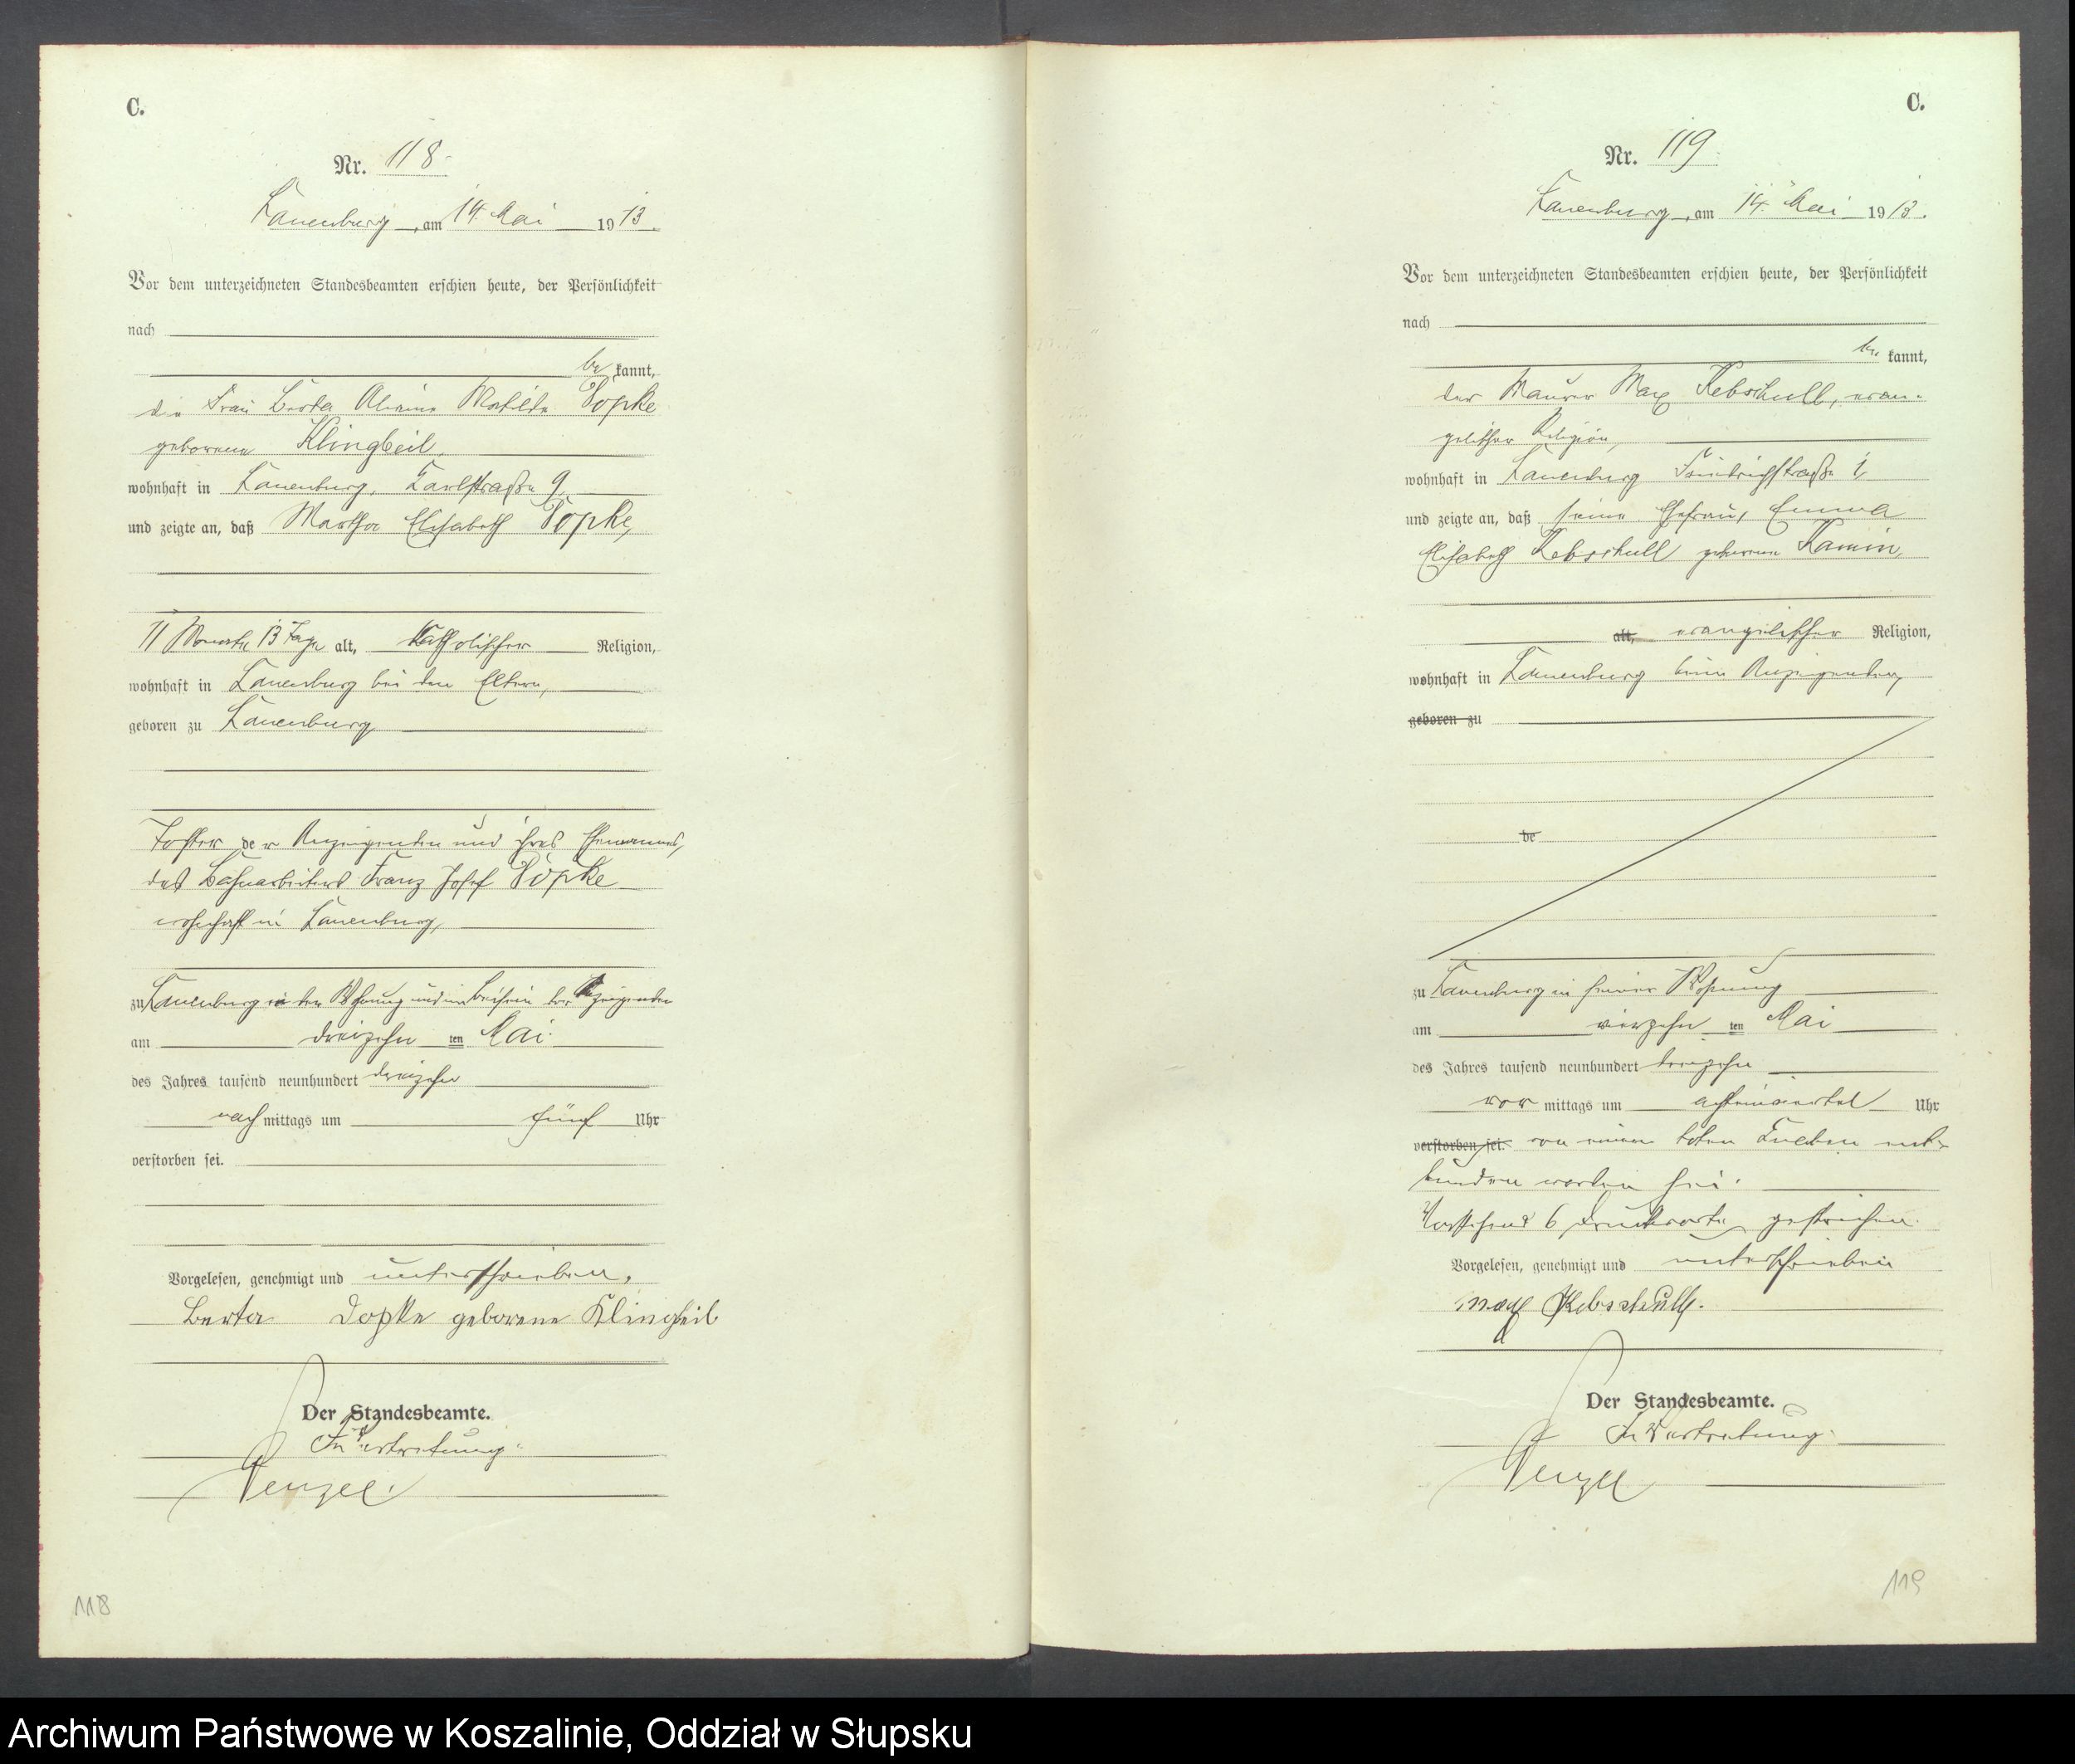 C.
Nr. 118
Lauenburg, am 14. Mai 1913.
Vor dem unterzeichneten Standesbeamten erschien heute, der Persönlichkeit
nach
be kannt,
die Frau Berta Matilde Dopke
geborene Klingbeil,
wohnhaft in Lauenburg, Karlstraße 9,
und zeigte an, daß Martha Elisabeth Dopke,
11 Monate 13 Tage alt, katholischer Religion,
wohnhaft in Lauenburg bei den Eltern,
geboren zu Lauenburg
Tochter der Anzeigenden und ihres Ehemannes,
des Bahnarbeiters Franz Josef Dopke
wohnhaft in Lauenburg,
zu Lauenburg in der Wohnung und im Beisein der Anzeigenden
am dreizehn ten Mai
des Jahres tausend neunhundert dreizehn
nach mittags um fünf Uhr
verstorben sei.
Vorgelesen, genehmigt und unterschrieben.
Berta Dopke geborene Klingbeil
Der Standesbeamte.
In Vertretung.
118
C.
Nr. 119
Lauenburg, am 14. Mai 1913.
Vor dem unterzeichneten Standesbeamten erschien heute, der Persönlichkeit
nach
be kannt,
der Maurer Max Kebschull, evan-
gelischer Religion,
wohnhaft in Lauenburg Friedrichstraße
und zeigte an, daß seine Ehefrau, Emma
Elisabeth Kebschull geborene Kamin,
alt, evangelischer Religion,
wohnhaft in Lauenburg beim Anzeigenden,
geboren zu
de
zu Lauenburg in seiner Wohnung
am vierzehn ten Mai
des Jahres tausend neunhundert dreizehn
vor mittags um achteinviertel Uhr
verstorben sei. von einem toten Knaben ent-
bunden worden sei.
Vorstehend 6 Druckworte gestrichen.
Vorgelesen, genehmigt und unterschrieben
Max Kebschull.
Der Standesbeamte.
In Vertretung.
119
Archiwum Państwowe w Koszalinie, Oddział w Słupsku